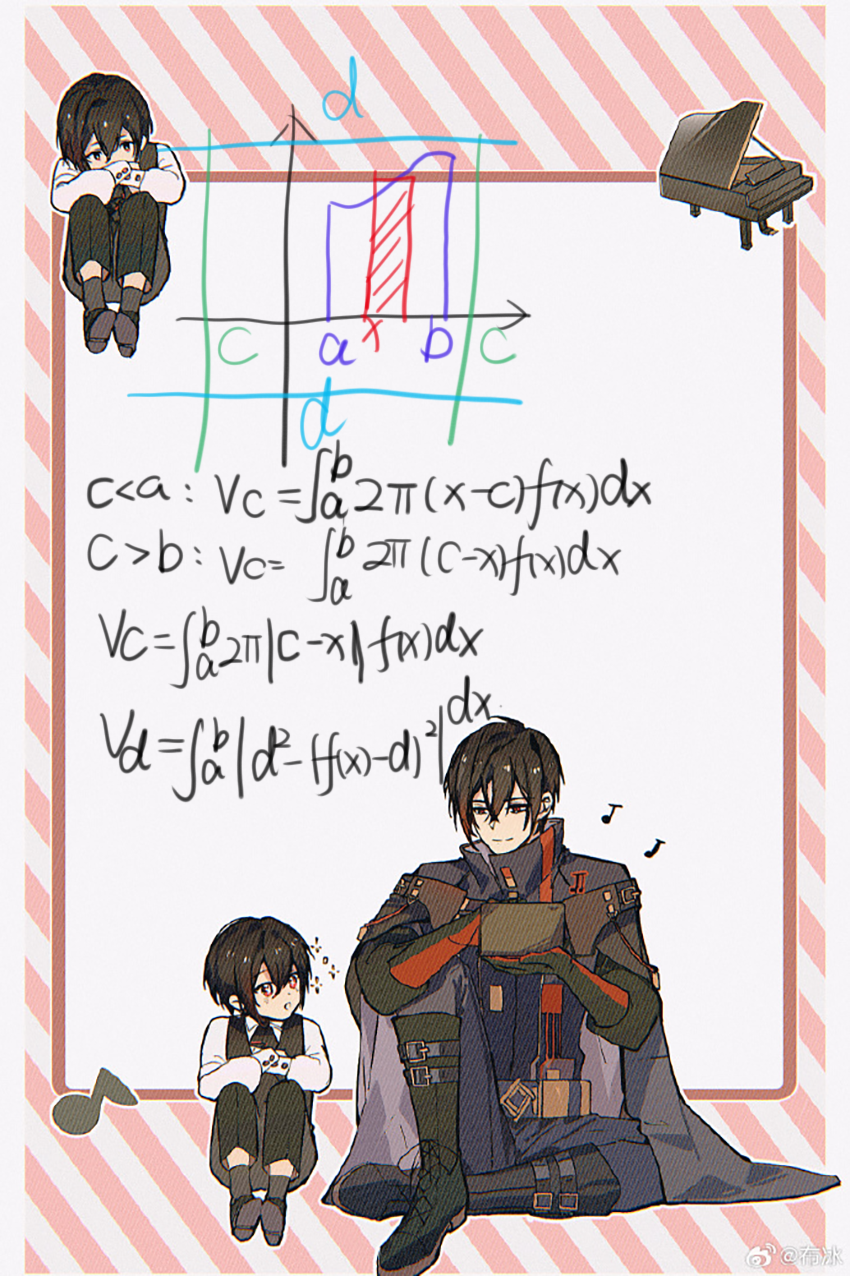 d
c a x b c
d
c<a: Vc=∫ₐᵇ2π(x-c)f(x)dx
c>b: Vc=∫ₐᵇ2π(c-x)f(x)dx
Vc=∫ₐᵇ2π|c-x|f(x)dx
Vd=∫ₐᵇ|d²-(f(x)-d)²|dx
@布冰